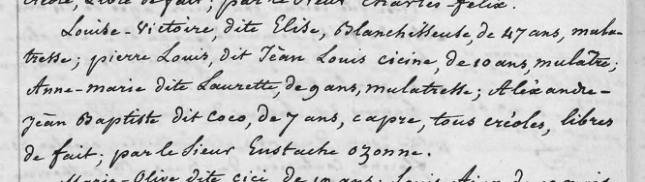 libre de fait; par le Sieur Charles-Felix.
Louise-Victoire, dite Elise, Blanchisseuse, de 47 ans, mula-
tresse; pierre Louis, dit Jèan Louis cicine, de 10 ans, mulâtre;
Anne-marie dite Laurette, de 9 ans, mulatresse; Aléxandre-
Jèan Baptiste dit Coco, de 7 ans, capre, tous créoles, libres
de fait; par le Sieur Eustache Ozonne.
Marie-Olive dite cici de 10 ans; Louis